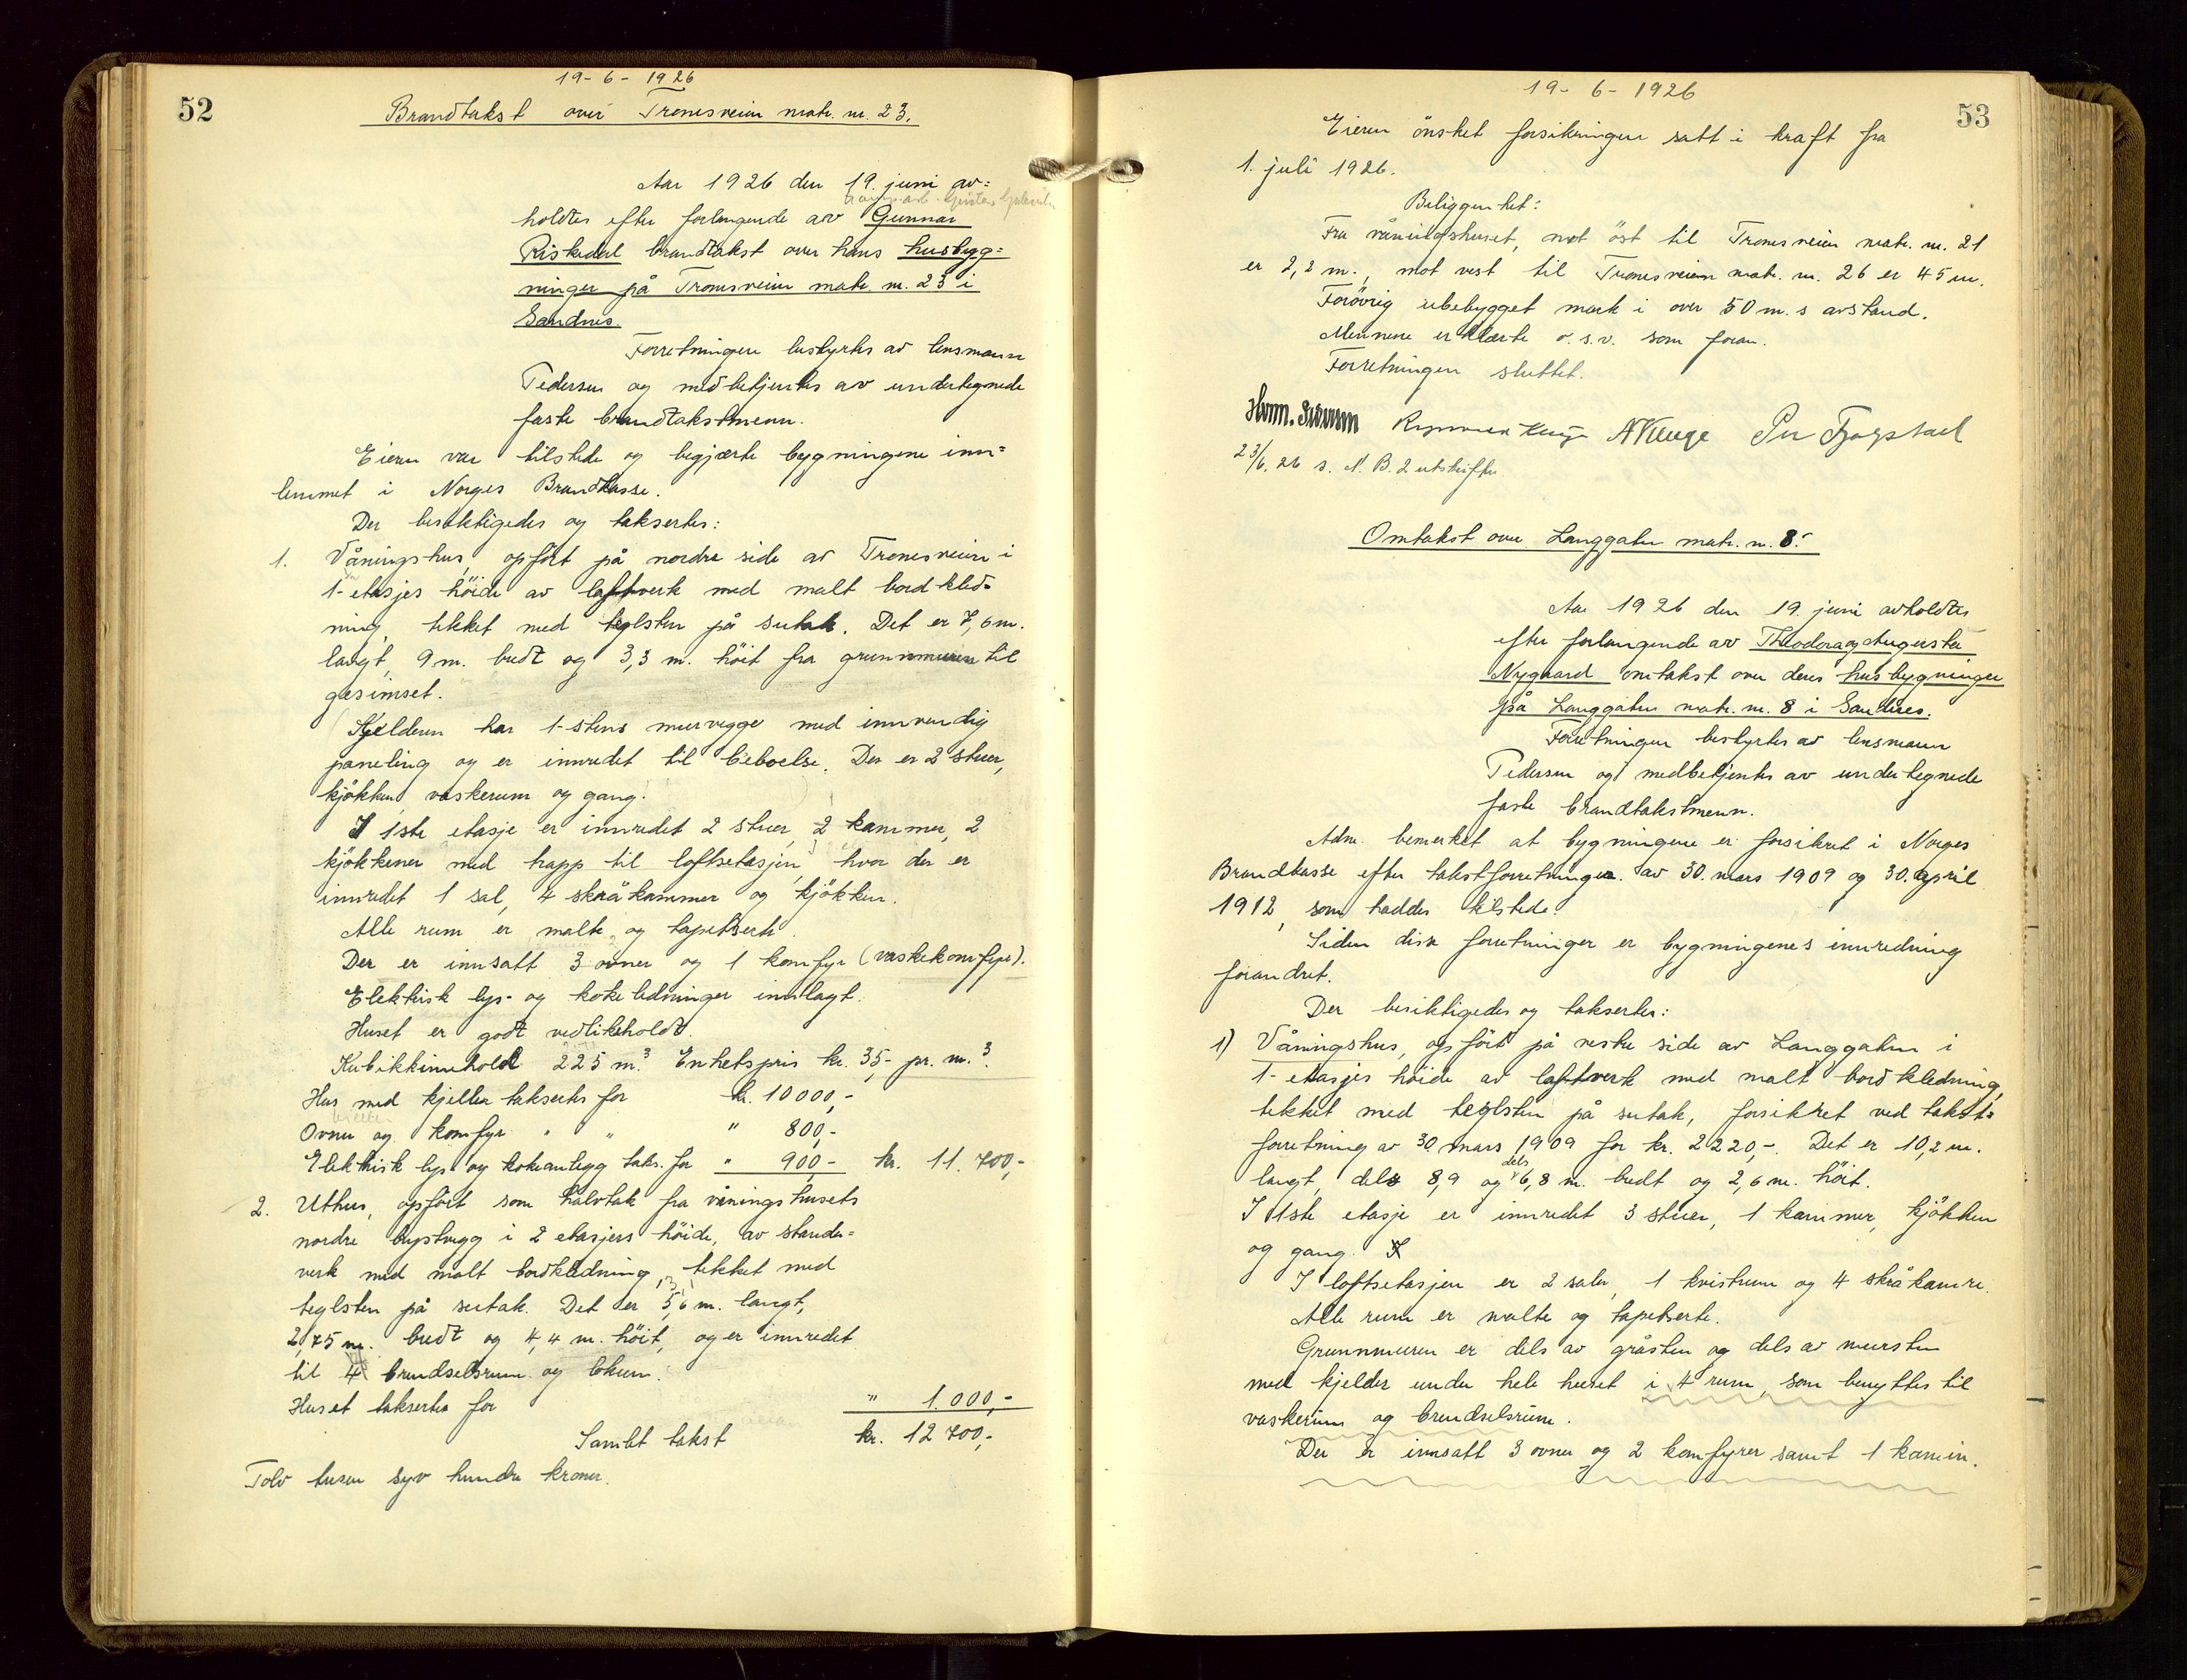 52
19-6-1926
Brandtakst over Tronesveien matr. nr. 23.
Aar 1926 den 19. juni av=
holdtes efter forlangende av Gunnar
Riskedal brandtakst over hans husbygg=
ninger på Tronesveien matr. nr. 23 i
Sandnes.
Forretningen bestyrtes av lensmann
Pedersen og medbetjentes av undertegnede
faste brandtakstmenn.
Eieren var tilstede og begjærte bygningene inn=
lemmet i Norges Brandkasse.
Der besiktigedes og taksertes:
1. Våningshus, opført på nordre side av Tronesveien i
1-etasjes höide av laftverk med malt bordkled=
ning, tekket med teglsten på sutak. Det er 7,6 m.
langt, 9 m. bredt og 3,3 m. höit fra grunnmuren til
gesimset.
Kjelderen har 1-stens murvegge med innvendig
paneling og er innredet til beboelse. Der er 2 stuer,
kjökken, vaskerum og gang.
I 1ste etasje er innredet 2 stuer, 2 kammer, 2
kjökkener med trapp til loftsetasjen, hvor der er
innredet 1 sal, 4 skråkammer og kjökken.
Alle rum er malte og tapetserte.
Der er innsatt 3 ovner og 1 komfyr (vaskekomfyr).
Elektrisk lys- og kokeledninger innlagt.
Huset er godt vedlikeholdt.
Kubikkinnhold 225 m.³ Enhetspris kr. 35,- pr. m.³
Hus med kjeller taksertes for kr. 10000,-
Ovner og komfyr " " " 800,-
Elektrisk lys og kokeanlegg taks. for " 900,- kr. 11.700,-
2. Uthus, opført som halvtak fra våningshusets
nordre langvegg i 2 etasjers höide, av stender=
verk med malt bordkledning, tekket med
teglsten på sutak. Det er 5,6 m. langt,
2,75 m. bredt og 4,4 m. höit, og er innredet
til 4 brendselsrum og lokum.
Huset taksertes for " 1.000,-
Samlet takst kr. 12700,-
Tolv tusen syv hundre kroner.
53
19-6-1926
Eieren önsket forsikringen satt i kraft fra
1. juli 1926.
Beliggenhet:
Fra våningshuset, mot öst til Tronesveien matr. nr. 21
er 2,2 m., mot vest til Tronesveien matr. nr. 26 er 45 m.
Forövrig ubebygget mark i over 50 m.s avstand.
Mennene erklærte o.s.v. som foran.
Forretningen sluttet.
A Kluge Per Fjogstad
23/6. 26 s. N. B. 2 utskrifter.
Omtakst over Langgaten matr. nr. 8.
Aar 1926 den 19. juni avholdtes
efter forlangende av Theodora og Augusta
Nygaard omtakst over deres husbygninger
på Langgaten matr. nr. 8 i Sandnes.
Forretningen bestyrtes av lensmann
Pedersen og medbetjentes av undertegnede
faste brandtakstmenn.
Adm. bemerket at bygningene er forsikret i Norges
Brandkasse efter takstforretninger av 30. mars 1909 og 30. april
1912, som haddes tilstede.
Siden disse forretninger er bygningenes innredning
forandret.
Der besiktigedes og taksertes:
1) Våningshus, opfört på vestre side av Langgaten i
1-etasjes höide av laftverk med malt bordkledning,
tekket med teglsten på sutak, forsikret ved takst=
forretning av 30. mars 1909 for kr. 2220,-. Det er 10,2 m.
langt, dels 8,9 og dels 6,8 m. bredt og 2,6 m. höit.
I 1ste etasje er innredet 3 stuer, 1 kammer, kjökken
og gang.
I loftsetasjen er 2 saler, 1 kvistrum og 4 skråkamre.
Alle rum er malte og tapetserte.
Grunnmuren er dels av gråsten og dels av mursten
med kjelder under hele huset i 4 rum, som benyttes til
vaskerum og brendselsrum.
Der er innsatt 3 ovner og 2 komfyrer samt 1 kamin.